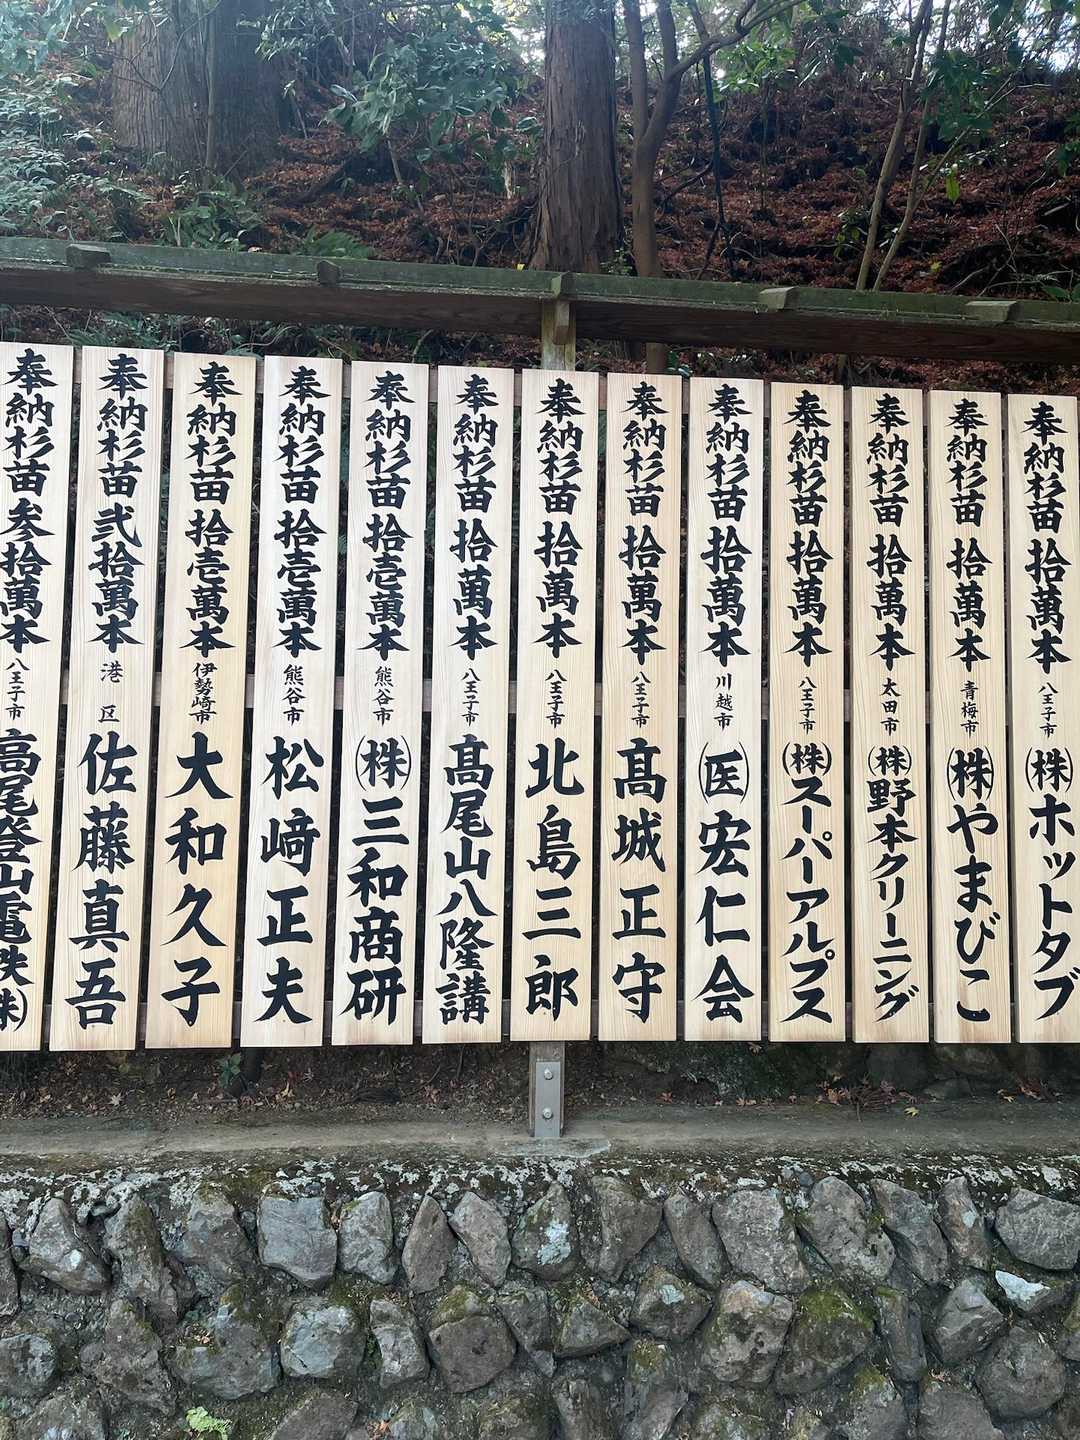 奉納杉苗拾萬本 八王子市 (株)ホットタブ
奉納杉苗拾萬本 青梅市 (株)やまびこ
奉納杉苗拾萬本 太田市 (株)野本クリーニング
奉納杉苗拾萬本 八王子市 (株)スーパーアルプス
奉納杉苗拾萬本 川越市 (医)宏仁会
奉納杉苗拾萬本 八王子市 髙城正守
奉納杉苗拾萬本 八王子市 北島三郎
奉納杉苗拾萬本 八王子市 髙尾山八隆講
奉納杉苗拾壱萬本 熊谷市 (株)三和商研
奉納杉苗拾壱萬本 熊谷市 松﨑正夫
奉納杉苗拾壱萬本 伊勢崎市 大和久子
奉納杉苗弐拾萬本 港区 佐藤真吾
奉納杉苗参拾萬本 八王子市 高尾登山電鉄(株)